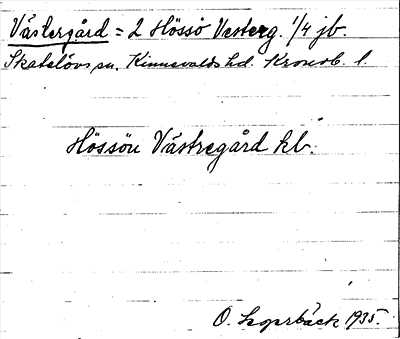 Västergård = 2 Hössö Vesterg. 1/4 jb.
Skatelövs sn. Kinnevalds hd. Kronob. l.
Hössön Västregård kb.
O. Lagerbäck 1935.